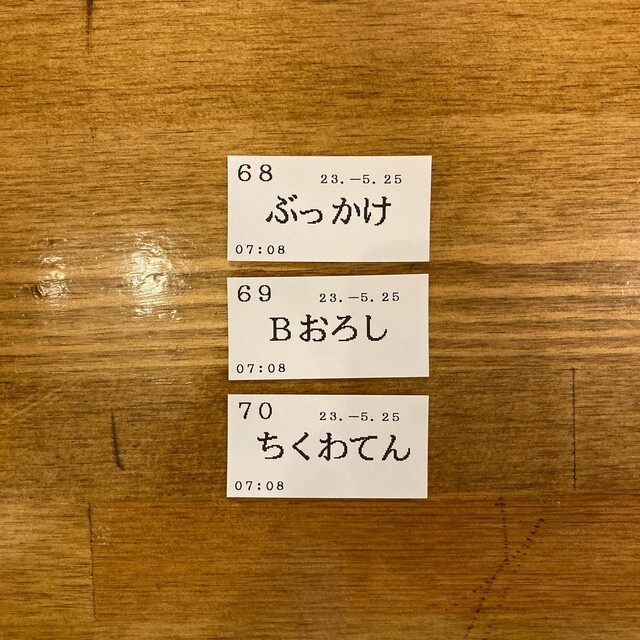 68 23.-5.25
ぶっかけ
07:08
69 23.-5.25
Bおろし
07:08
70 23.-5.25
ちくわてん
07:08